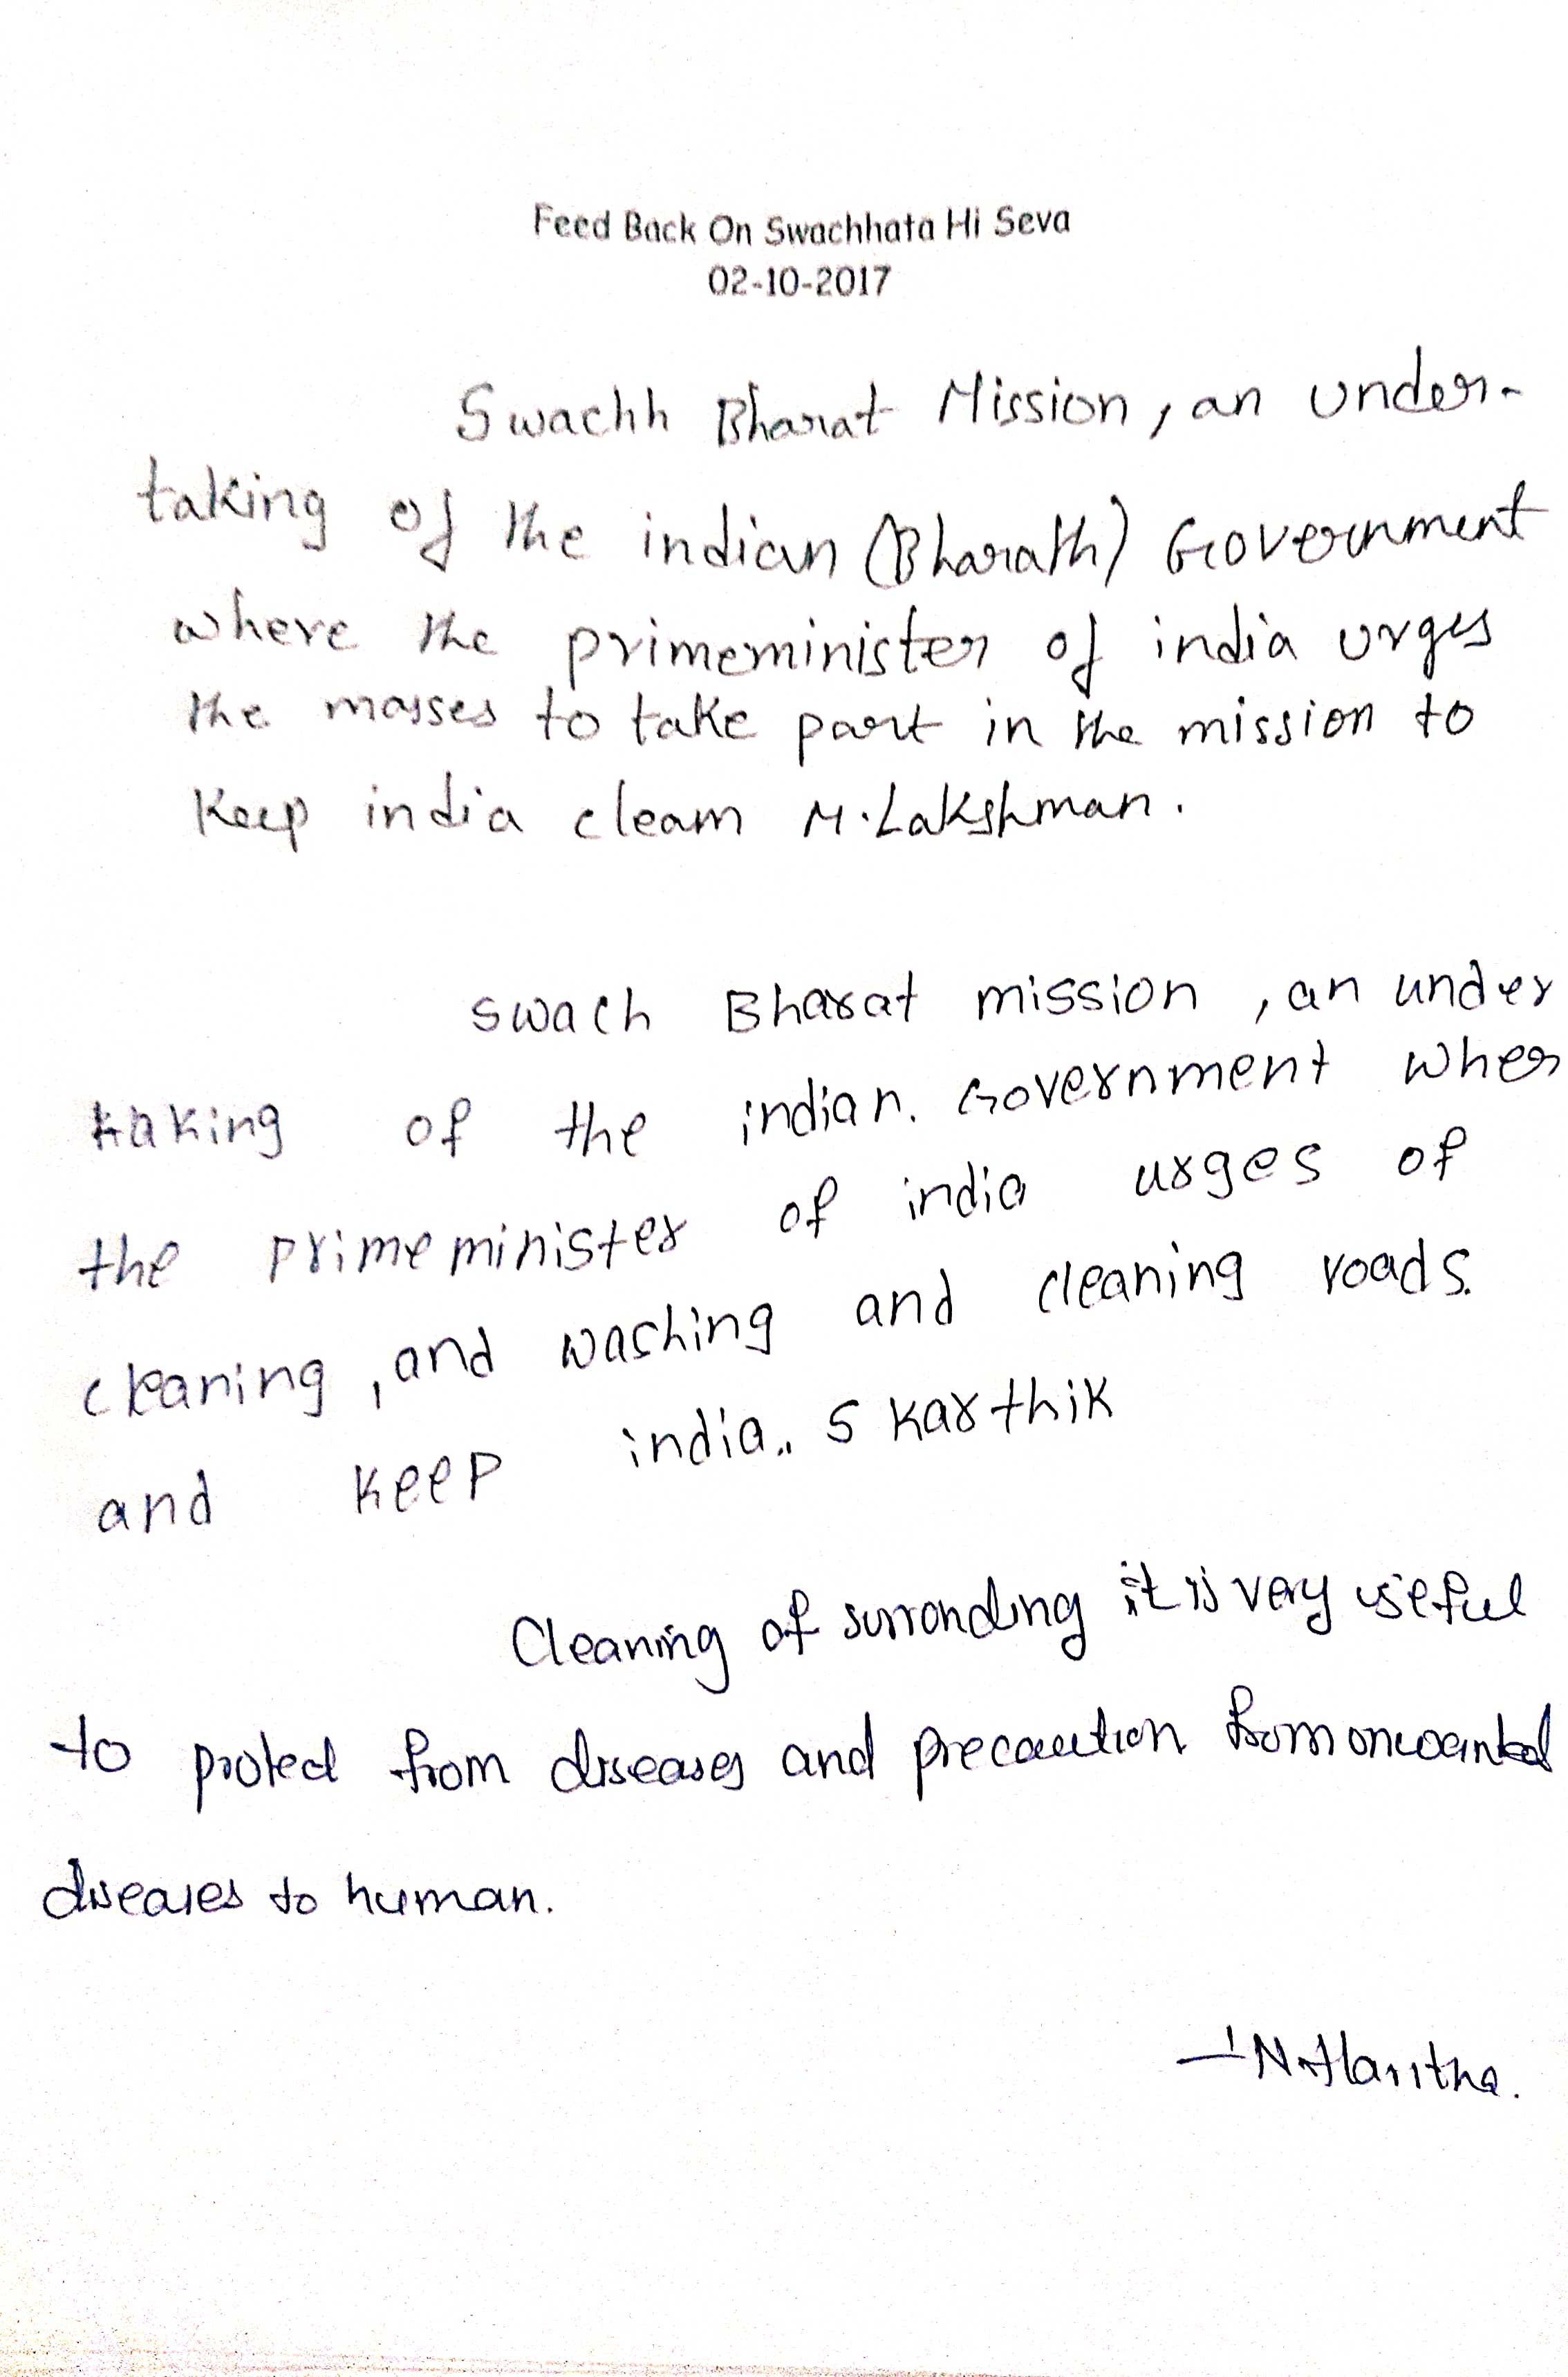 Feed Back On Swachhata Hi Seva
02-10-2017
Swachh Bharat Mission, an under-
taking of the indian (Bharath) Government
where the primeminister of india urges
the masses to take part in the mission to
Keep india cleam M.Lakshman.
Swach Bharat mission , an under
taking of the indian. Government wher
the primeminister of india urges of
cleaning , and washing and cleaning roads.
and keep india.. S Karthik
Cleaning of surronding it is very useful
to protect from diseases and precaution from onwanted
diseases to human.
- N. Haritha.